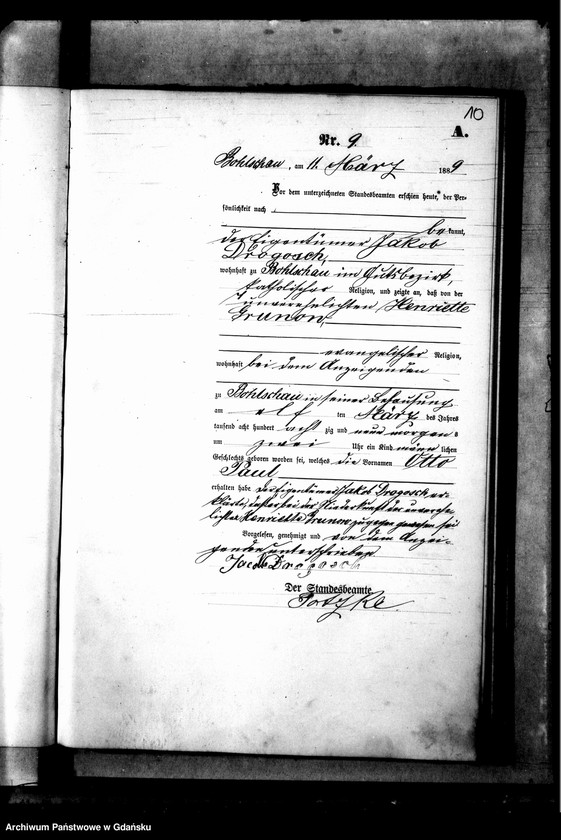 10
A.
Nr. 9.
Bohlschau, am 11. März 1889
Vor dem unterzeichneten Standesbeamten erschien heute, der Per-
sönlichkeit nach
bekannt,
der Eigentümer Jakob
Drogosch,
wohnhaft zu Bohlschau im Gutsbezirk,
katholischer Religion, und zeigte an, daß von der
unverehelichten Henriette
Grunow,
evangelischer Religion,
wohnhaft bei dem Anzeigenden
zu Bohlschau in seiner Behausung
am elf ten März des Jahres
tausend acht hundert acht zig und neun morgens
um zwei Uhr ein Kind männlichen
Geschlechts geboren worden sei, welches die Vornamen Otto
Paul
erhalten habe. Der Eigentümer Jakob Drogosch er-
klärte, daß er bei der Niederkunft der unverehe-
lichten Henriette Grunow zugegen gewesen sei
Vorgelesen, genehmigt und von dem Anzei-
genden unterschrieben
Jacob Drogosch
Der Standesbeamte.
Archiwum Państwowe w Gdańsku